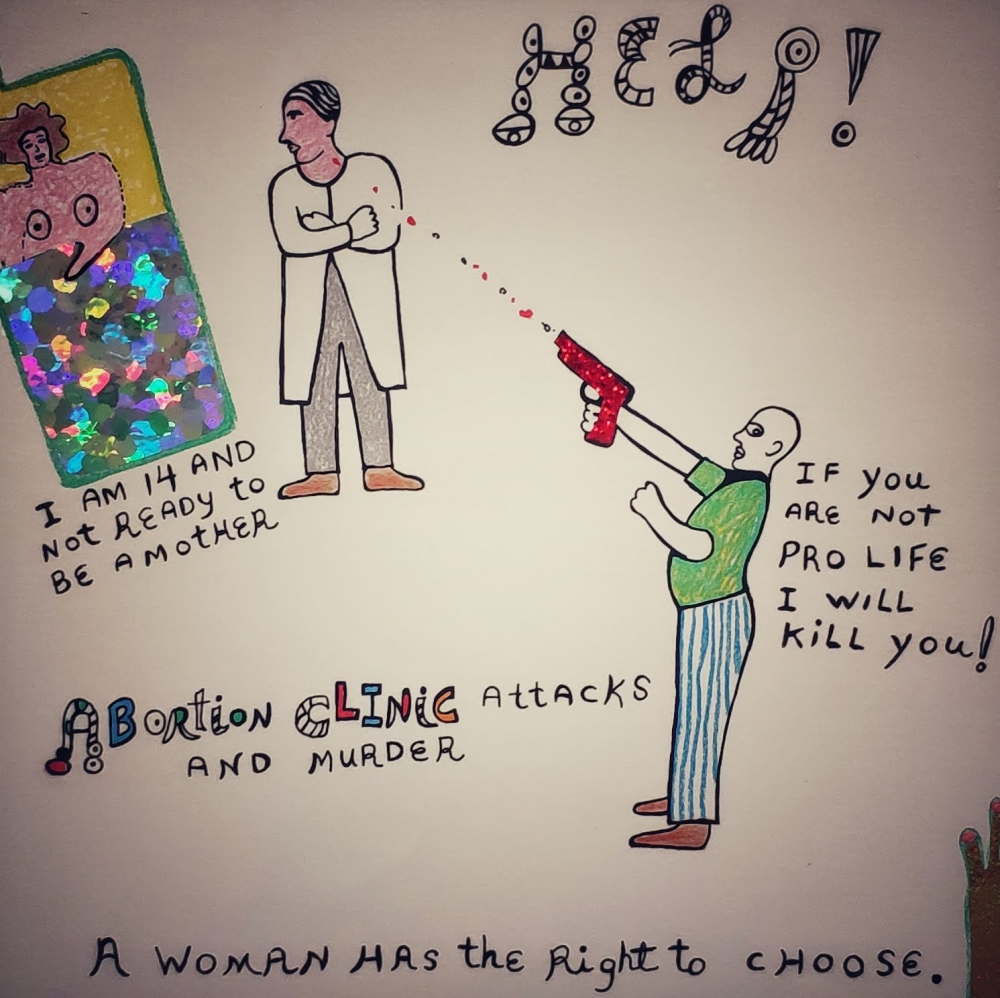 HELP!
I AM 14 AND
Not READY to
BE A MOtHER
IF you
ARE NOt
PRO LIFE
I WiLL
KiLL you!
ABORtiON CLINiC AttACKS
AND MURDER
A WOMAN HAS the Right to CHOOSE.